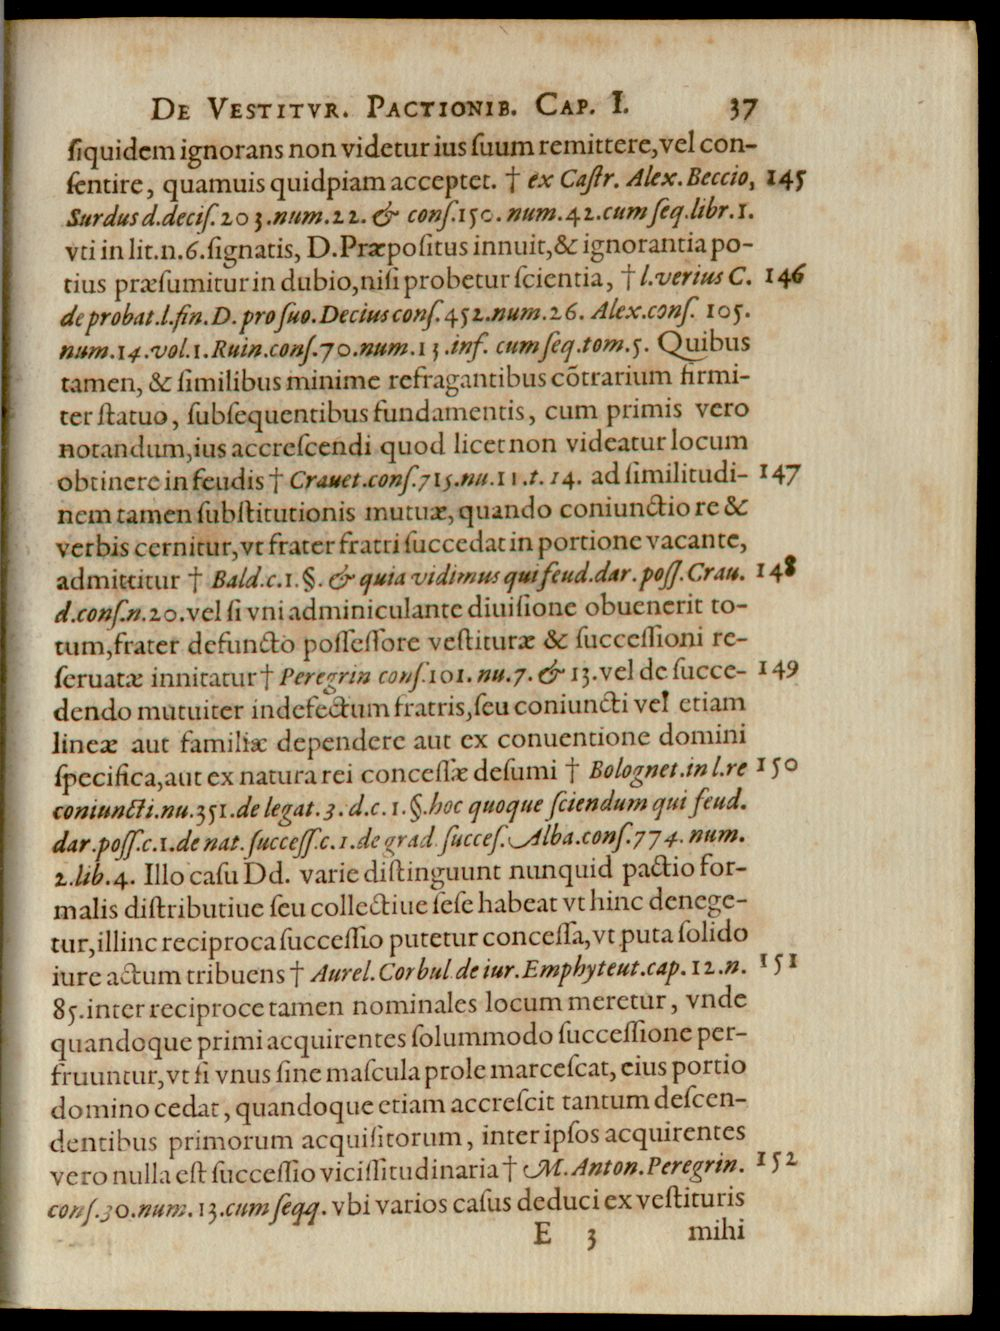 DE VESTITVR. PACTIONIB. CAP. I. 37
ſiquidem ignorans non videtur ius ſuum remittere, vel con-
ſentire, quamuis quidpiam acceptet. † ex Caſtr. Alex. Beccio, 145
Surdus d. deciſ. 203. num. 22. & conſ. 150. num. 42. cum ſeq. libr. 1.
vti in lit. n. 6. ſignatis, D. Præpoſitus innuit, & ignorantia po-
tius præſumitur in dubio, niſi probetur ſcientia, † l. verius C. 146
de probat. l. fin. D. pro ſuo. Decius conſ. 452. num. 26. Alex. conſ. 105.
num. 14. vol. 1. Ruin. conſ. 70. num. 13. inf. cum ſeq. tom. 5. Quibus
tamen, & ſimilibus minime refragantibus cõtrarium firmi-
ter ſtatuo, ſubſequentibus fundamentis, cum primis vero
notandum, ius accreſcendi quod licet non videatur locum
obtinere in feudis † Crauet. conſ. 715. nu. 11. t. 14. ad ſimilitudi- 147
nem tamen ſubſtitutionis mutuæ, quando coniunctio re &
verbis cernitur, vt frater fratri ſuccedat in portione vacante,
admittitur † Bald. c. 1. §. & quia vidimus qui feud. dar. poſſ. Crau. 148
d. conſ. n. 20. vel ſi vni adminiculante diuiſione obuenerit to-
tum, frater defuncto poſſeſſore veſtituræ & ſucceſſioni re-
ſeruatæ innitatur † Peregrin conſ. 101. nu. 7. & 13. vel de ſucce- 149
dendo mutuiter in defectum fratris, ſeu coniuncti vel etiam
lineæ aut familiæ dependere aut ex conuentione domini
ſpecifica, aut ex natura rei conceſſæ deſumi † Bolognet. in l. re 150
coniuncti. nu. 351. de legat. 3. d. c. 1. §. hoc quoque ſciendum qui feud.
dar. poſſ. c. 1. de nat. ſucceſſ. c. 1. de grad. ſucceſ. Alba. conſ. 774. num.
2. lib. 4. Illo caſu Dd. varie diſtinguunt nunquid pactio for-
malis diſtributiue ſeu collectiue ſeſe habeat vt hinc denege-
tur, illinc reciproca ſucceſſio putetur conceſſa, vt puta ſolido
iure actum tribuens † Aurel. Corbul. de iur. Emphyteut. cap. 12. n. 151
85. inter reciproce tamen nominales locum meretur, vnde
quandoque primi acquirentes ſolummodo ſucceſſione per-
fruuntur, vt ſi vnus ſine maſcula prole marceſcat, eius portio
domino cedat, quandoque etiam accreſcit tantum deſcen-
dentibus primorum acquiſitorum, inter ipſos acquirentes
vero nulla eſt ſucceſſio viciſſitudinaria † M. Anton. Peregrin. 152
conſ. 30. num. 13. cum ſeqq. vbi varios caſus deduci ex veſtituris
E 3 mihi